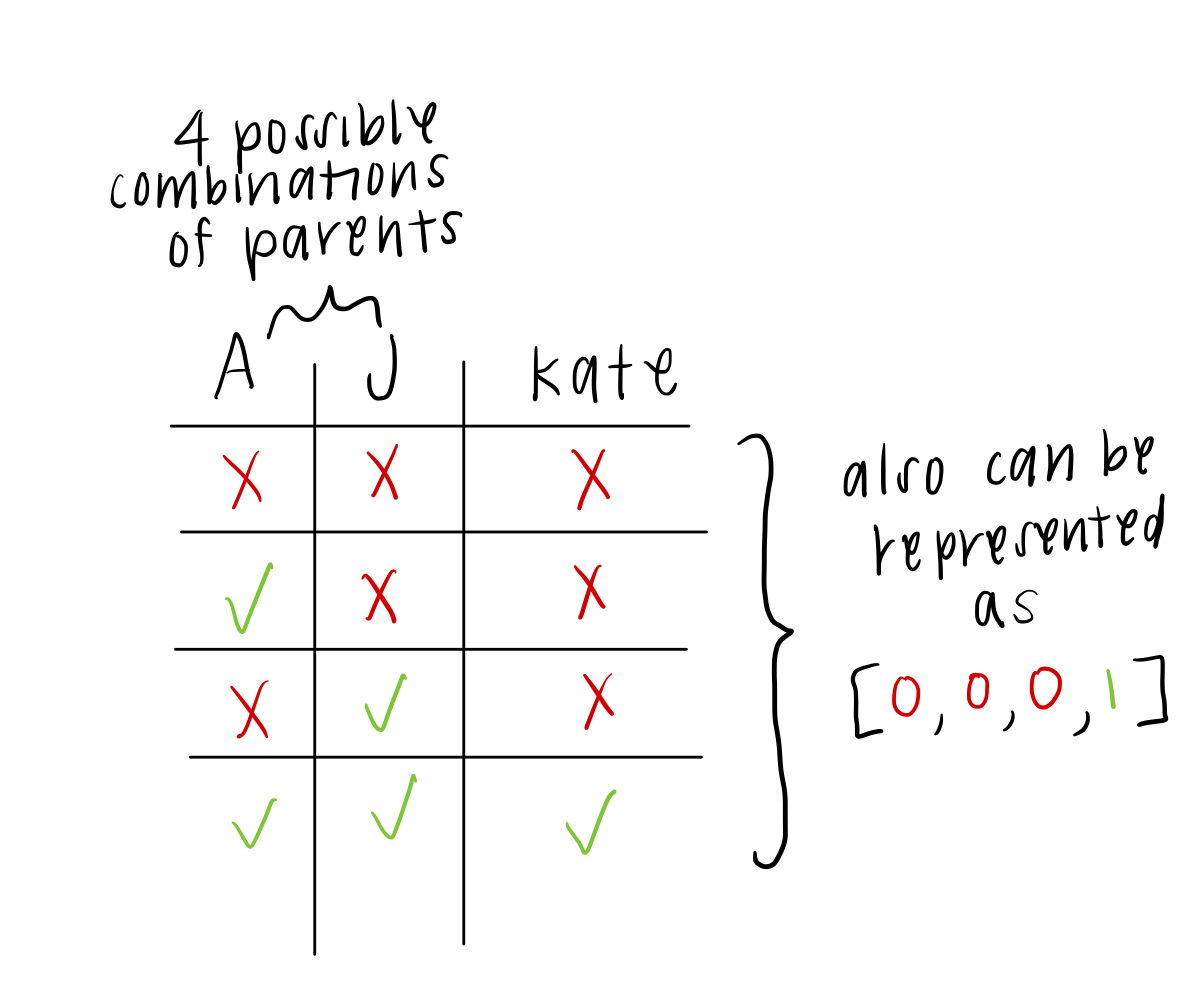 4 possible
combinations
of parents
A J kate
X X X
✓ X X
X ✓ X
✓ ✓ ✓
also can be
represented
as
[0, 0, 0, 1]